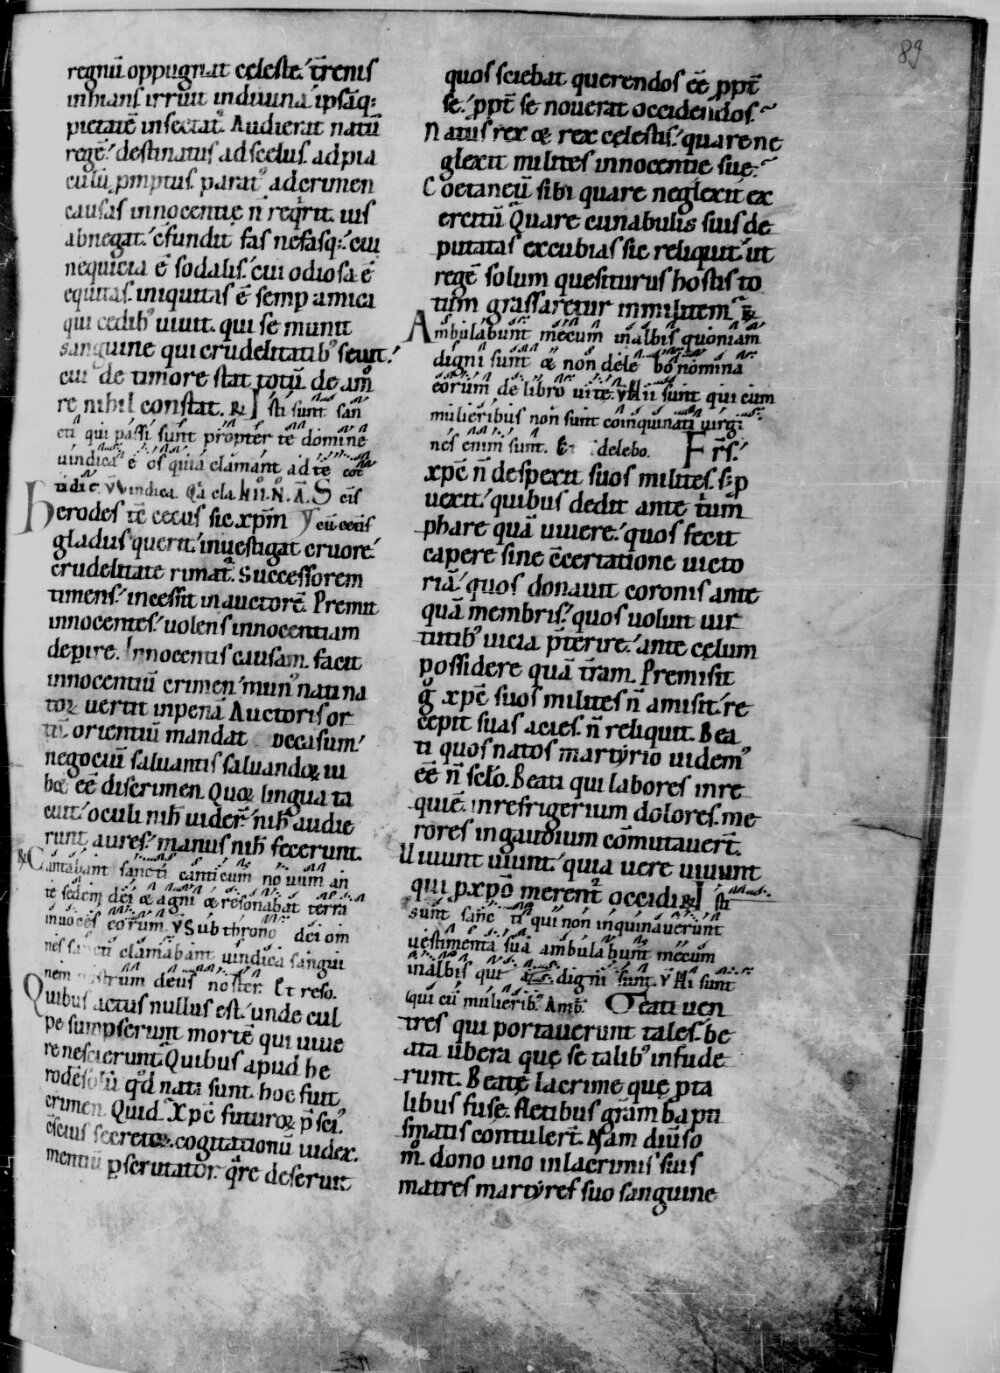 89
regnū oppugnat celeste. t̄renis
inhians irruit in diuina. ipsāq;
pietatē insectat᷑. Audierat natū
regē. destinatus ad scelus. ad pia
culū p̄mptus. parat᷒ ad crimen
causas innocentię n̄ req̇rit. ius
abnegat. c̄fundit fas nefasq;. cui
nequicia ē sodalis. cui odiosa ē
equitas. iniquitas ē semp amica
qui cedib᷒ uiuit. qui se munit
sanguine qui crudelitatib᷒ seuit.
cui de timore stat totū. de amo
re nihil constat. ℞ Isti sunt san
cti qui passi sunt propter te domine
uindica eos quia clamant ad te cot
tidie. ℣ Vindica. Q̄a cla. In II. N̄. A. S eūs
Herodes tc̄ cecus sic xp̄m
gladius querit. inuestigat cruore.
crudelitate rimat᷑. Successorem
timens. incessit in auctorē. Premit
innocentes. uolens innocentiam
depire. Innocentis causam. facit
innocentiū crimen. mun᷒ nati na
toꝝ uertit in penā Auctoris or
tū orientiū mandat occasum.
negociū saluantis saluandoꝝ iu
bet eē discrimen. Quoꝝ lingua ta
cuit. oculi nih̄ uider̄. nih̄ audie
runt aures. manus nih̄ fecerunt.
℞ Cantabant sancti canticum nouum an
te sedem dei & agni & resonabat terra
in uoces eorum. ℣ Sub throno dei om
nes sancti clamabant uindica sangui
nem nostrum deus noster. Et reso.
Quibus actus nullus est. unde cul
pe sumpserunt mortē qui uiue
re nescierunt. Quibus apud he
rodē solū qd̄ nati sunt. hoc fuit
crimen. Quid. Xp̄c futuroꝝ p̄sci᷒
c̄scius secretoꝝ. cogitationū iudex.
mentiū pscrutator. q̄re deseruit
quos sciebat querendos eē ppt̄
se. ppt̄ se nouerat occidendos.
Natus rex & rex celestis. quare ne
glexit milites innocentie suę.
Coetaneū sibi quare neglexit ex
ercitū Quare cunabulis suis de
putatas excubias sic reliquit. ut
regē solum quesiturus hostis to
tum grassaretur in militem. ℞
Ambulabunt mecum in albis quoniam
digni sunt & non delebo nomina
eorum de libro uite. ℣ Hii sunt qui cum
mulieribus non sunt coinquinati uirgi
nes enim sunt. Et delebo. Frs̄.
xp̄c n̄ despexit suos milites. s; p
uexit. quibus dedit ante t̄um
phare quā uiuere. quos fecit
capere sine c̄certatione uicto
riā. quos donauit coronis ante
quā membris. quos uoluit uir
tutib᷒ uicia p̄terire. ante cęlum
possidere quā t̄ram. Premisit
g̊ xp̄c suos milites n̄ amisit. re
cepit suas acies. n̄ reliquit. Bea
ti quos natos martyrio uidem᷒
eē n̄ sclo. Beati qui labores in re
quiē. in refrigerium dolores. me
rores in gaudium cōmutauert̄.
Uiuunt uiuunt. quia uere uiuunt
qui p xp̄o merent᷑ occidi. ℞ Isti
sunt sancti qui non inquinauerunt
uestimenta sua ambulabunt mecum
in albis qui digni sunt. ℣ Hi sunt
qui cū mulierib᷒. Amb̄. Beati uen
tres qui portauerunt tales. be
ata ubera que se talib᷒ infude
runt. Beatę lacrime quę p ta
libus fuse. fletibus gr̄am bapti
smatis contulert̄. Nam diūso
m̊. dono uno in lacrimis suis
matres martyres suo sanguine